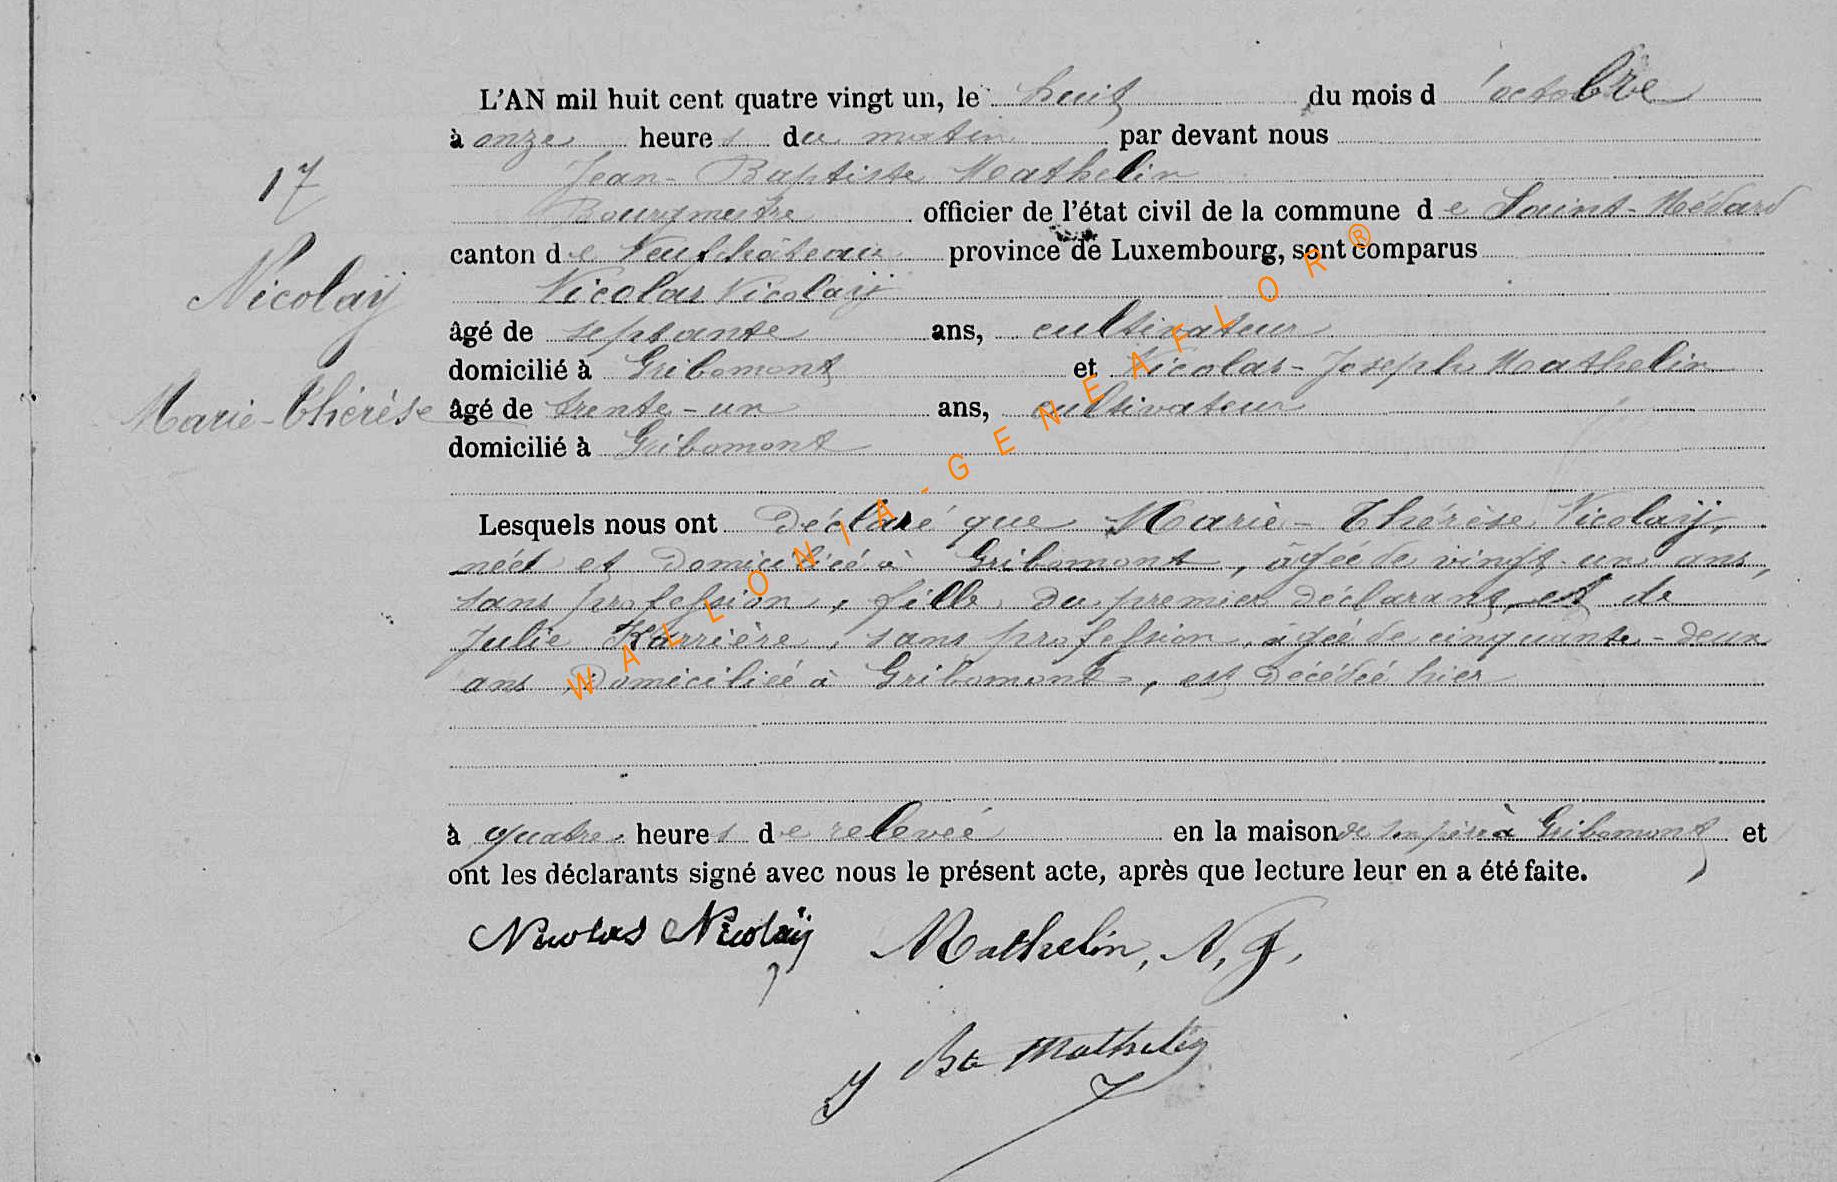 L'AN mil huit cent quatre vingt un, le huit du mois d'octobre
à onze heures du matin par devant nous
17
Jean-Baptiste Mathelin
Bourgmestre officier de l'état civil de la commune de Saint-Médard
canton de Neufchâteau province de Luxembourg, sont comparus
Nicolaÿ
Nicolas Nicolaÿ
âgé de septante ans, cultivateur
domicilié à Gribomont et Nicolas-Joseph Mathelin
Marie-Thérèse
âgé de trente-un ans, cultivateur
domicilié à Gribomont
Lesquels nous ont déclaré que Marie-Thérèse Nicolaÿ,
née et domiciliée à Gribomont, âgée de vingt-un ans,
sans profession, fille du premier déclarant et de
Julie Karrière, sans profession, âgée de cinquante-deux
ans, domiciliée à Gribomont, est décédée hier
à quatre heures de relevée en la maison de son père à Gribomont et
ont les déclarants signé avec nous le présent acte, après que lecture leur en a été faite.
Nicolas Nicolaÿ Mathelin, N, J,
J Bte Mathelin
WALLONIA-GENEAFLOR®